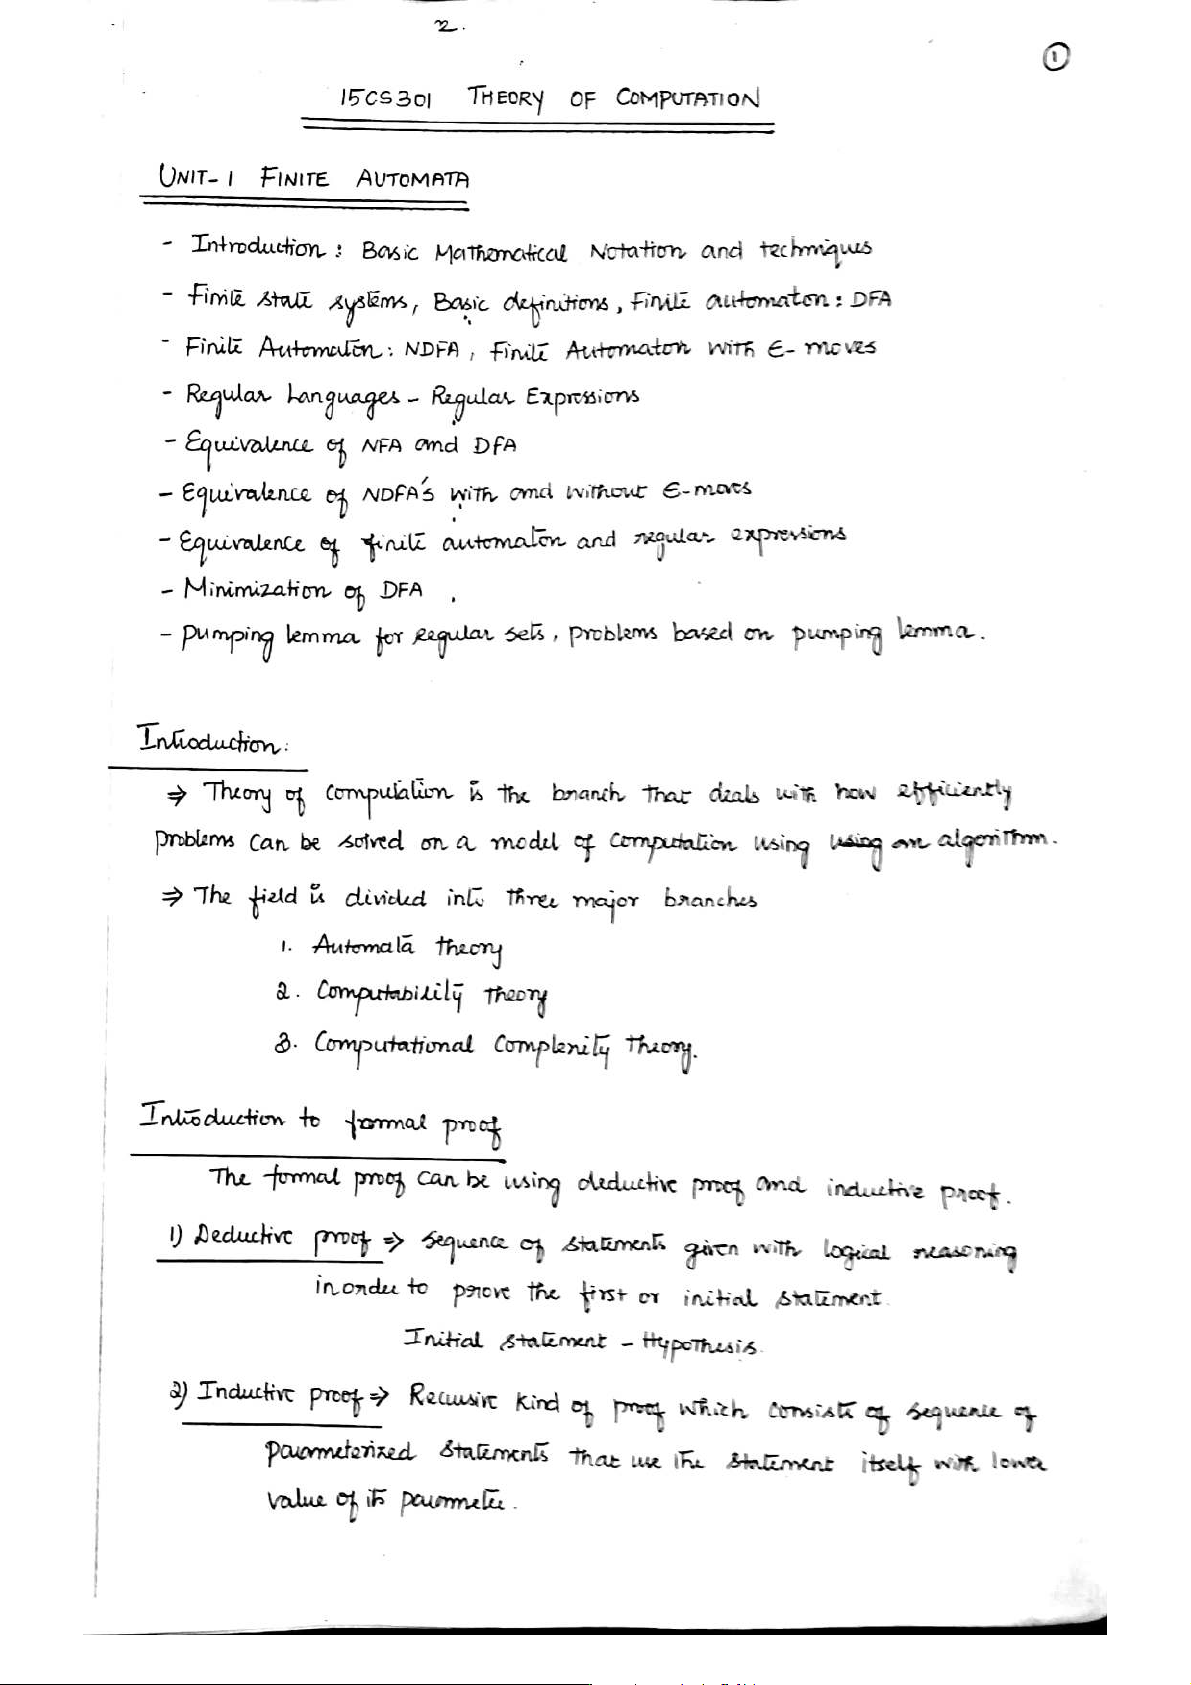 2.
1
15CS301 THEORY OF COMPUTATION
UNIT-1 FINITE AUTOMATA
- Introduction : Basic Mathematical Notation and techniques
- Finite state systems, Basic definitions, Finite automaton : DFA
- Finite Automaton : NDFA, Finite Automaton with ε- moves
- Regular Languages - Regular Expressions
- Equivalence of NFA and DFA
- Equivalence of NDFA's with and without ε-moves
- Equivalence of finite automaton and regular expressions
- Minimization of DFA .
- Pumping lemma for Regular sets, problems based on pumping lemma.
Introduction:
⇒ Theory of computation is the branch that deals with how efficiently
problems can be solved on a model of computation using using an algorithm.
⇒ The field is divided into three major branches
1. Automata theory
2. Computability theory
3. Computational Complexity theory.
Introduction to formal proof
The formal proof can be using deductive proof and inductive proof.
1) Deductive proof ⇒ sequence of statements given with logical reasoning
inorder to prove the first or initial statement.
Initial statement - Hypothesis.
2) Inductive proof ⇒ Recursive kind of proof which consists of sequence of
parameterized statements that use the statement itself with lower
value of its parameter.